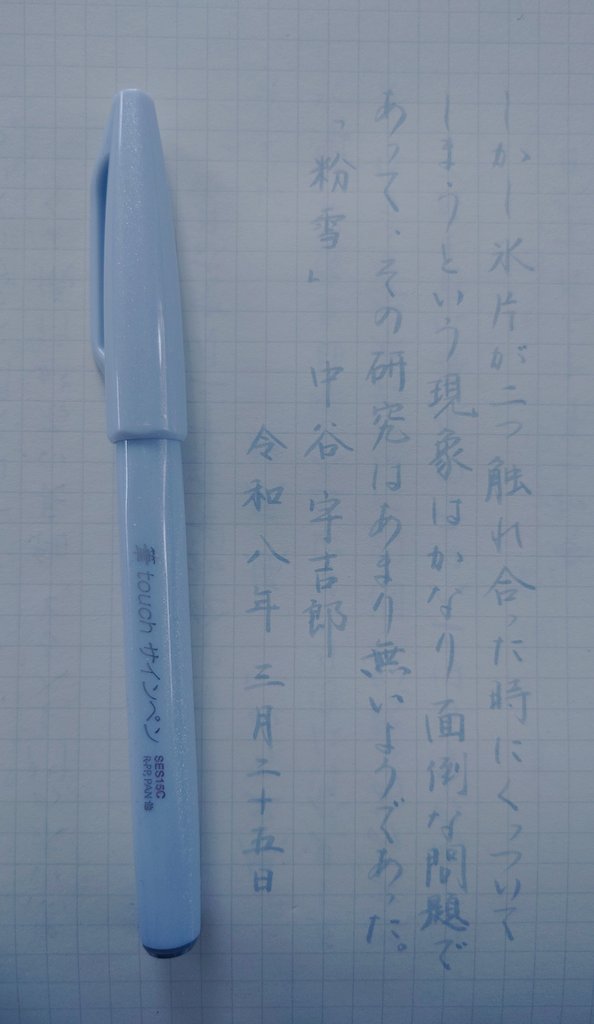 しかし氷片が二つ触れ合った時にくっついて
しまうという現象はかなり面倒な問題で
あって、その研究はあまり無いようであった。
「粉雪」 中谷宇吉郎
令和八年三月二十五日
筆touchサインペン
SES15C
R-PP, PAN